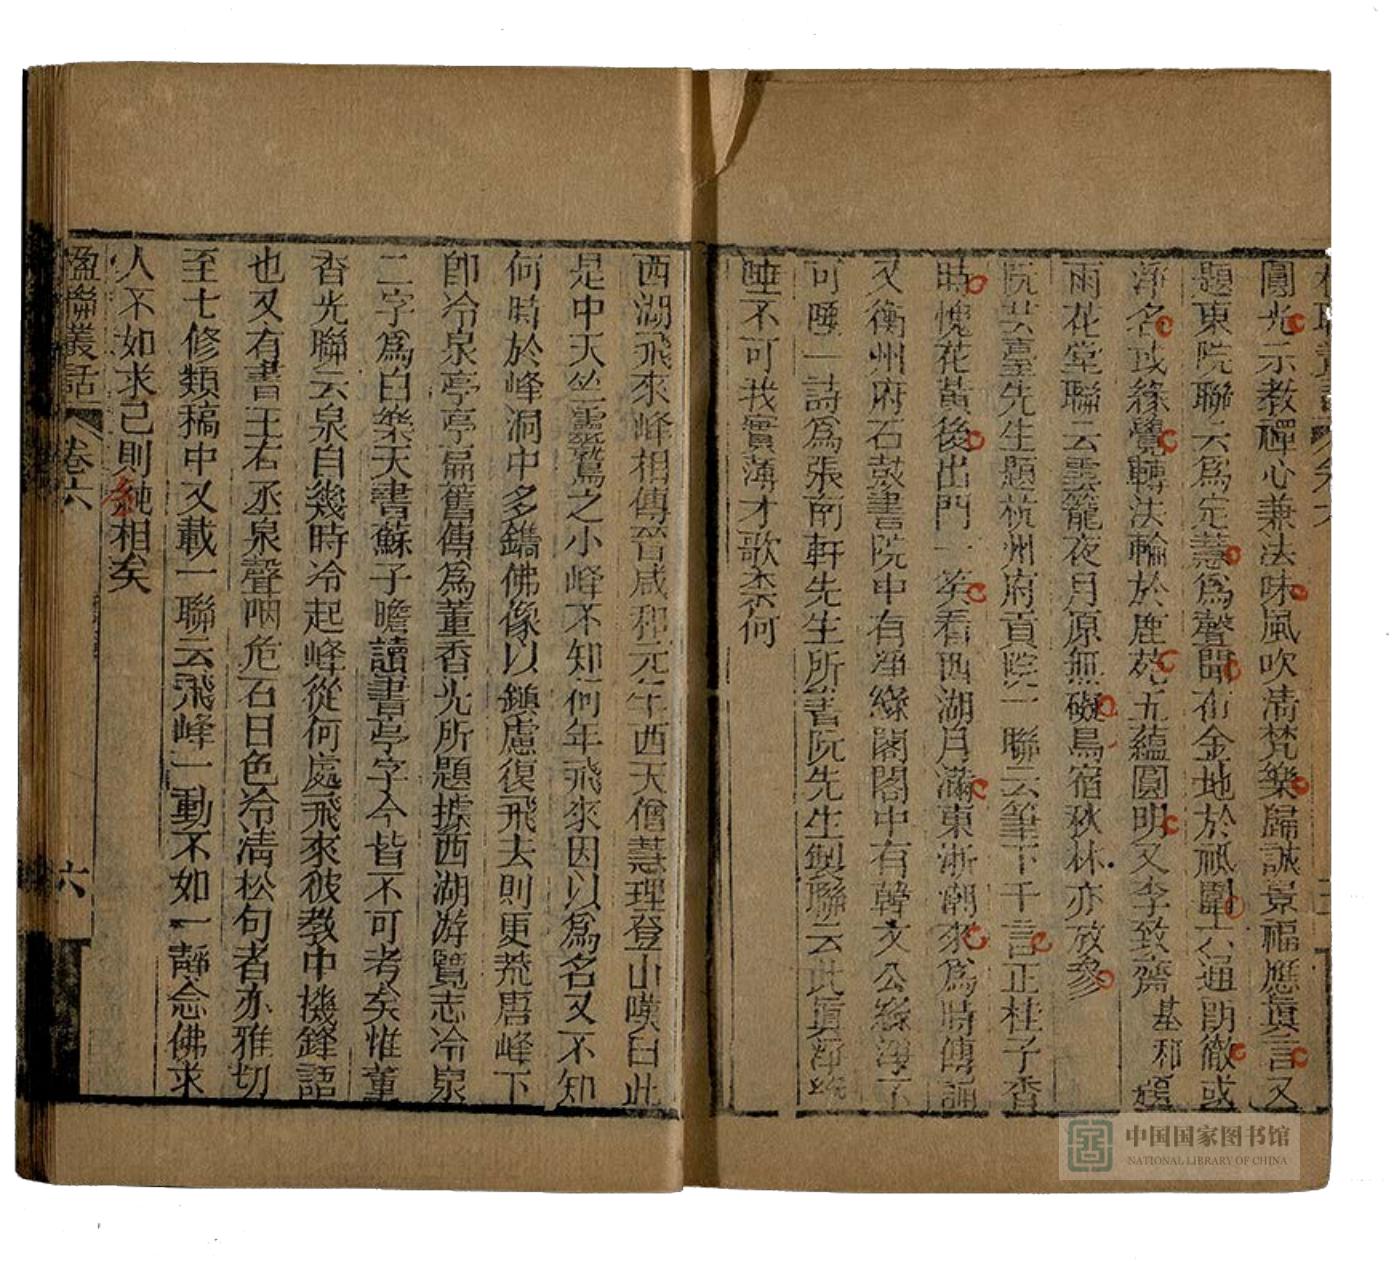 圓光示教禪心兼法味風吹清梵樂歸誠景福應眞言又
題東院聯云爲定慧爲聲聞布金地於祇園六通朗徹或
淨名或緣覺轉法輪於鹿苑五蘊圓明又李致齋基和題
雨花堂聯云雲籠夜月原無礙鳥宿秋林亦放參
阮芸臺先生題杭州府貢院一聯云筆下千言正桂子香
時槐花黃後出門一笑看西湖月滿東浙潮來爲時傳誦
又衡州府石鼓書院中有淨綠閣閣中有韓文公綠淨不
可唾一詩爲張南軒先生所書阮先生製聯云此眞淨綠
唾不可我實薄才歌柰何
西湖飛來峰相傳晉咸和元年西天僧慧理登山嘆曰此
是中天竺靈鷲之小峰不知何年飛來因以爲名又不知
何時於峰洞中多鐫佛像以鎮慮復飛去則更荒唐峰下
卽冷泉亭亭扁舊傳爲董香光所題據西湖游覽志冷泉
二字爲白樂天書蘇子瞻讀書亭字今皆不可考矣惟董
香光聯云泉自幾時冷起峰從何處飛來彼教中機鋒語
也又有書王右丞泉聲咽危石日色冷淸松句者亦雅切
至七修類稿中又載一聯云飛峰一動不如一靜念佛求
人不如求己則純相矣
楹聯叢話 卷六 六
中国国家图书馆
NATIONAL LIBRARY OF CHINA